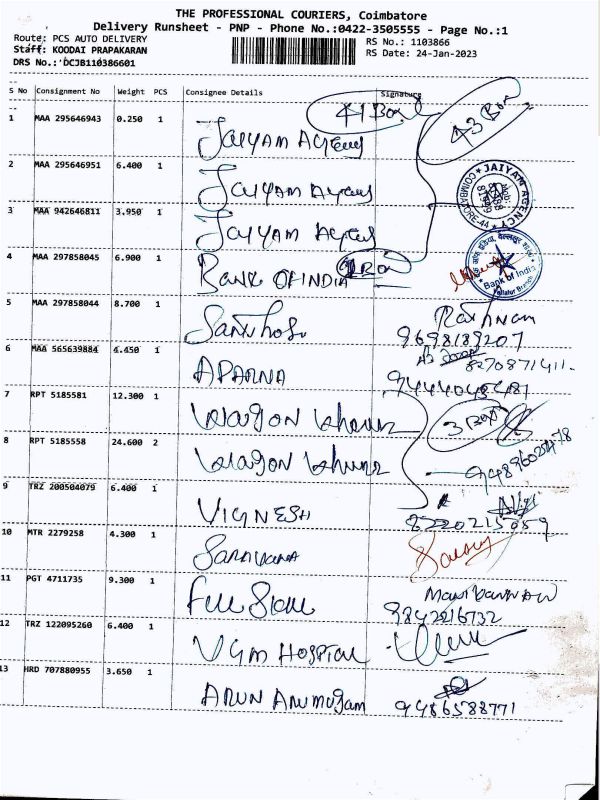 THE PROFESSIONAL COURIERS, Coimbatore
Delivery Runsheet - PNP - Phone No.:0422-3505555 - Page No.:1
Route: PCS AUTO DELIVERY
RS No.: 1103866
Staff: KOODAI PRAPAKARAN
RS Date: 24-Jan-2023
DRS No.: DCJB110386601
S No Consignment No Weight PCS Consignee Details Signature
41 Box 43 Box
1 MAA 295646943 0.250 1 JAIYAM Agency
2 MAA 295646951 6.400 1 JAIYAM Agency
JAIYAM AGENCY
COIMBATORE-44
3 MAA 942646811 3.950 1 JAIYAM Agency
4 MAA 297858045 6.900 1 BANK OF INDIA 1 Box
Bank of India
5 MAA 297858044 8.700 1 Santhosh Rathnam
9698183207
6 MAA 565639884 4.450 1 APARNA
8270871411
7 RPT 5185581 12.300 1
3 Box
8 RPT 5185558 24.600 2
9 TRZ 200504079 6.400 1 VIGNESH
8220215059
10 MTR 2279258 4.300 1 SARAVANA
11 PGT 4711735 9.300 1 Manikannan
9842216732
12 TRZ 122095260 6.400 1 VGM HOSPITAL
13 HRD 707880955 3.650 1 ARUN Arumugam 9486588771